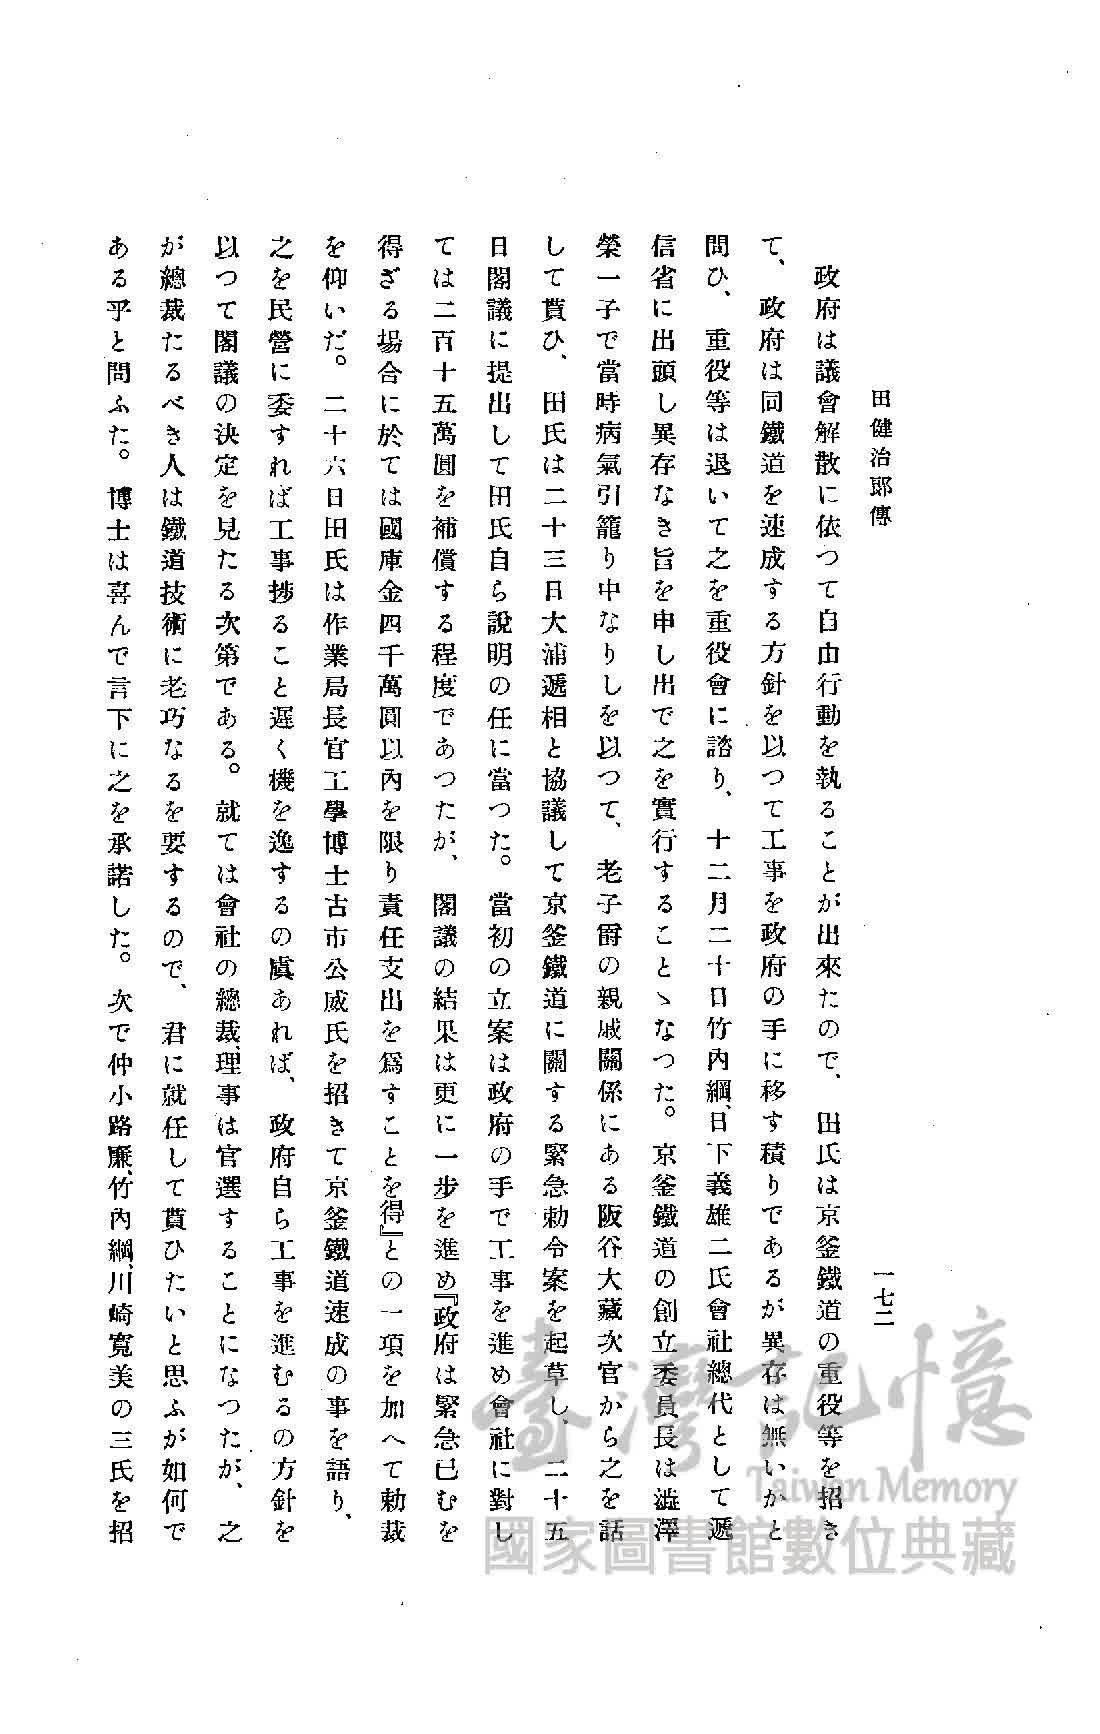 田健治郎傳
一七二
政府は議會解散に依つて自由行動を執ることが出來たので、田氏は京釜鐵道の重役等を招き
て、政府は同鐵道を速成する方針を以つて工事を政府の手に移す積りであるが異存は無いかと
問ひ、重役等は退いて之を重役會に諮り、十二月二十日竹內綱、日下義雄二氏會社總代として遞
信省に出頭し異存なき旨を申し出で之を實行することゝなつた。京釜鐵道の創立委員長は澁澤
榮一子で當時病氣引籠り中なりしを以つて、老子爵の親戚關係にある阪谷大藏次官から之を話
して貰ひ、田氏は二十三日大浦遞相と協議して京釜鐵道に關する緊急勅令案を起草し、二十五
日閣議に提出して田氏自ら說明の任に當つた。當初の立案は政府の手で工事を進め會社に對し
ては二百十五萬圓を補償する程度であつたが、閣議の結果は更に一步を進め『政府は緊急已むを
得ざる場合に於ては國庫金四千萬圓以內を限り責任支出を爲すことを得』との一項を加へて勅裁
を仰いだ。二十六日田氏は作業局長官工學博士古市公威氏を招きて京釜鐵道速成の事を語り、
之を民營に委すれば工事捗ること遲く機を逸するの虞あれば、政府自ら工事を進むるの方針を
以つて閣議の決定を見たる次第である。就ては會社の總裁、理事は官選することになつたが、之
が總裁たるべき人は鐵道技術に老巧なるを要するので、君に就任して貰ひたいと思ふが如何で
ある乎と問ふた。博士は喜んで言下に之を承諾した。次で仲小路廉、竹內綱、川崎寬美の三氏を招
臺灣記憶
Taiwan Memory
國家圖書館數位典藏